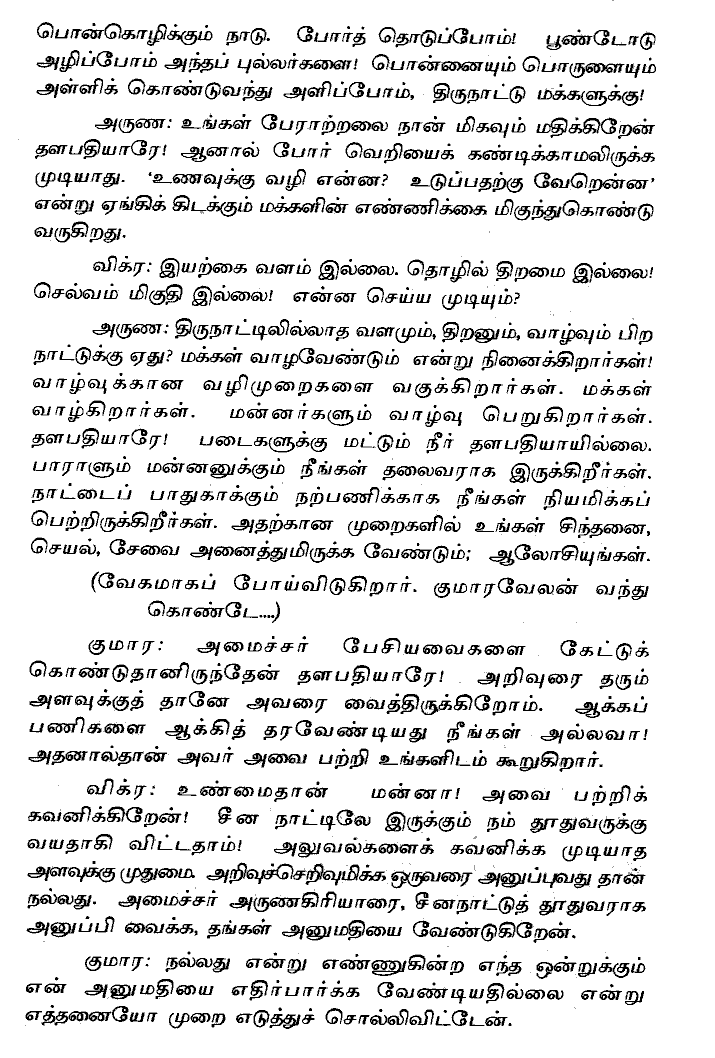 பொன்கொழிக்கும் நாடு. போர்த் தொடுப்போம்! பூண்டோடு
அழிப்போம் அந்தப் புல்லர்களை! பொன்னையும் பொருளையும்
அள்ளிக் கொண்டுவந்து அளிப்போம், திருநாட்டு மக்களுக்கு!
அருண: உங்கள் பேராற்றலை நான் மிகவும் மதிக்கிறேன்
தளபதியாரே! ஆனால் போர் வெறியைக் கண்டிக்காமலிருக்க
முடியாது. ‘உணவுக்கு வழி என்ன? உடுப்பதற்கு வேறென்ன’
என்று ஏங்கிக் கிடக்கும் மக்களின் எண்ணிக்கை மிகுந்துகொண்டு
வருகிறது.
விக்ர: இயற்கை வளம் இல்லை. தொழில் திறமை இல்லை!
செல்வம் மிகுதி இல்லை! என்ன செய்ய முடியும்?
அருண: திருநாட்டிலில்லாத வளமும், திறனும், வாழ்வும் பிற
நாட்டுக்கு ஏது? மக்கள் வாழவேண்டும் என்று நினைக்கிறார்கள்!
வாழ்வுக்கான வழிமுறைகளை வகுக்கிறார்கள். மக்கள்
வாழ்கிறார்கள். மன்னர்களும் வாழ்வு பெறுகிறார்கள்.
தளபதியாரே! படைகளுக்கு மட்டும் நீர் தளபதியாயில்லை.
பாராளும் மன்னனுக்கும் நீங்கள் தலைவராக இருக்கிறீர்கள்.
நாட்டைப் பாதுகாக்கும் நற்பணிக்காக நீங்கள் நியமிக்கப்
பெற்றிருக்கிறீர்கள். அதற்கான முறைகளில் உங்கள் சிந்தனை,
செயல், சேவை அனைத்துமிருக்க வேண்டும்; ஆலோசியுங்கள்.
(வேகமாகப் போய்விடுகிறார். குமாரவேலன் வந்து
கொண்டே....)
குமார: அமைச்சர் பேசியவைகளை கேட்டுக்
கொண்டுதானிருந்தேன் தளபதியாரே! அறிவுரை தரும்
அளவுக்குத் தானே அவரை வைத்திருக்கிறோம். ஆக்கப்
பணிகளை ஆக்கித் தரவேண்டியது நீங்கள் அல்லவா!
அதனால்தான் அவர் அவை பற்றி உங்களிடம் கூறுகிறார்.
விக்ர: உண்மைதான் மன்னா! அவை பற்றிக்
கவனிக்கிறேன்! சீன நாட்டிலே இருக்கும் நம் தூதுவருக்கு
வயதாகி விட்டதாம்! அலுவல்களைக் கவனிக்க முடியாத
அளவுக்கு முதுமை. அறிவுச்செறிவுமிக்க ஒருவரை அனுப்புவது தான்
நல்லது. அமைச்சர் அருணகிரியாரை, சீனநாட்டுத் தூதுவராக
அனுப்பி வைக்க, தங்கள் அனுமதியை வேண்டுகிறேன்.
குமார: நல்லது என்று எண்ணுகின்ற எந்த ஒன்றுக்கும்
என் அனுமதியை எதிர்பார்க்க வேண்டியதில்லை என்று
எத்தனையோ முறை எடுத்துச் சொல்லிவிட்டேன்.